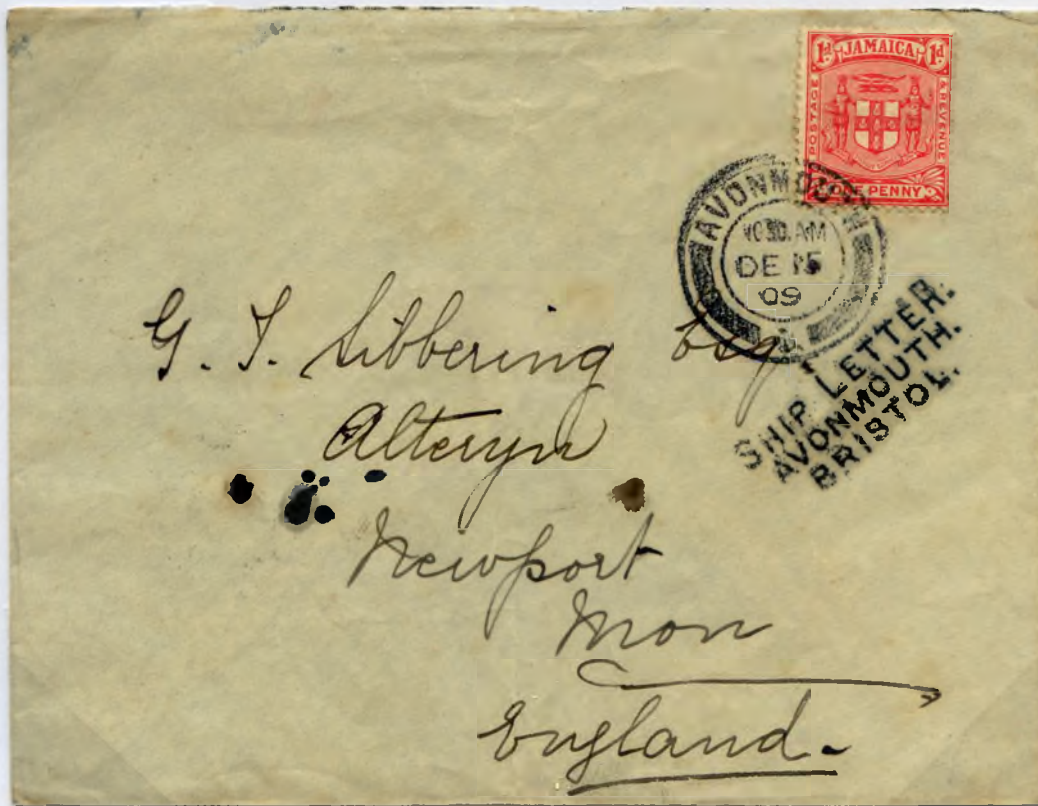 1d JAMAICA 1d
POSTAGE & REVENUE
ONE PENNY
AVONMOUTH
10 30 AM
DE 15
09
SHIP LETTER.
AVONMOUTH.
BRISTOL.
G. T. Sibbering Esq
Alteryn
Newport
Mon
England.